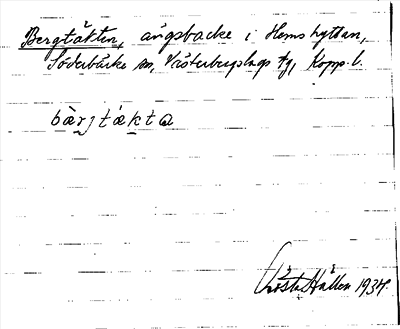 Bergtäkten, ängsbacke i Hemshyttan,
Söderbärke sn, Västerbergslags tg, Kopp. l.
bàrjtäkta
Gösta Hallen 1934.